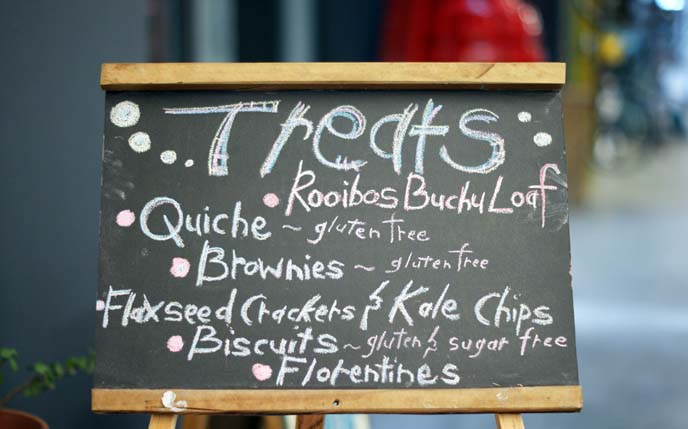 Treats
Rooibos Buchu Loaf
Quiche ~ gluten free
Brownies ~ gluten free
Flaxseed Crackers & Kale Chips
Biscuits ~ gluten & sugar free
Florentines